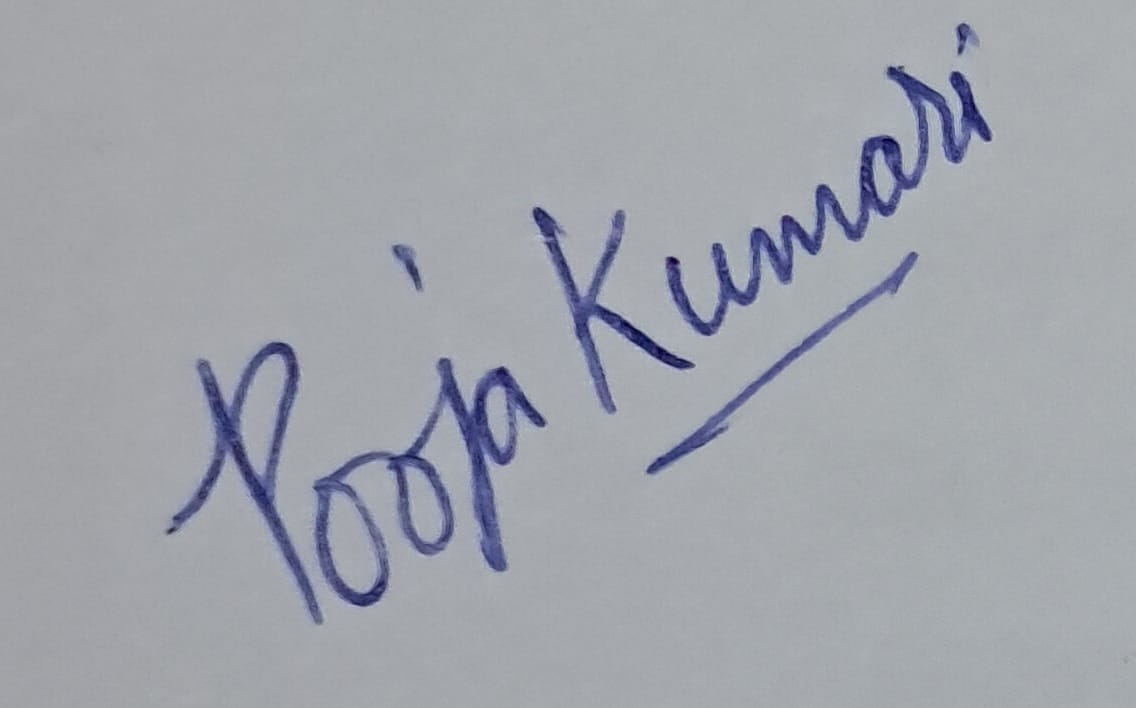 Pooja Kumari